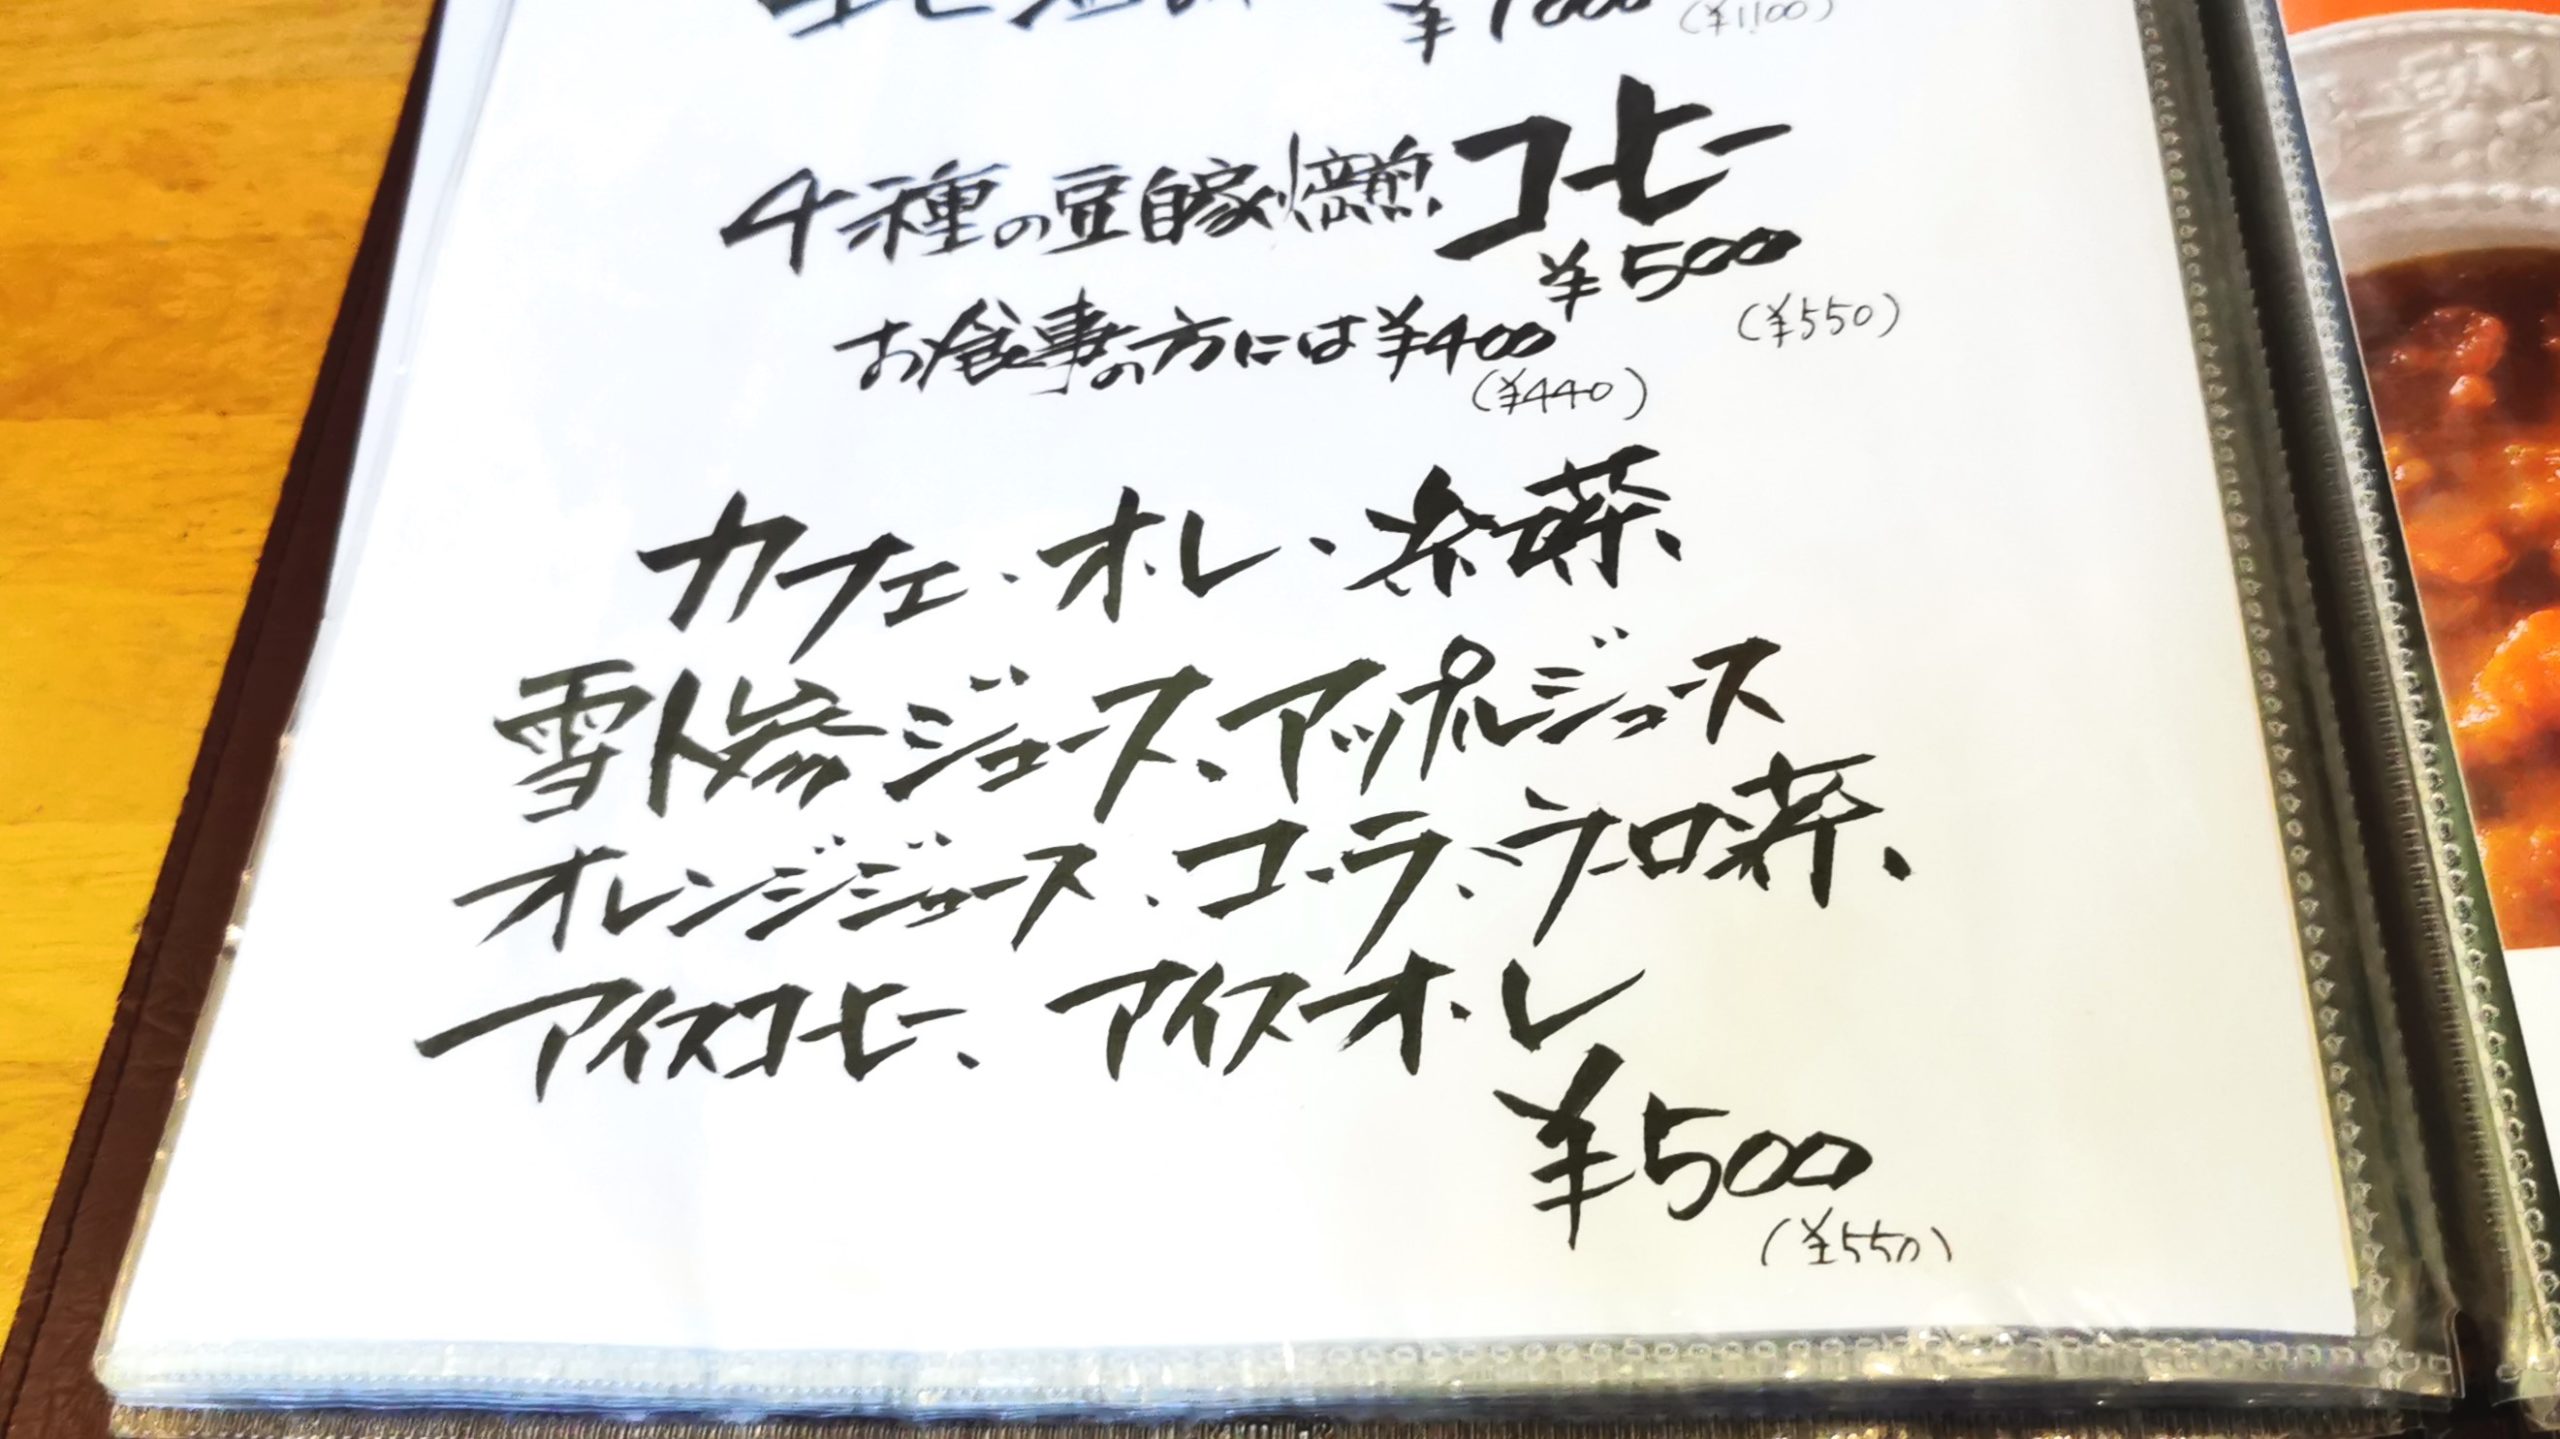 ¥1000 (¥1,100)
4種の豆自家焙煎コーヒー
¥500
(¥550)
お食事の方には¥400
(¥440)
カフェ・オ・レ・紅茶、
雪人参ジュース、アップルジュース
オレンジジュース、コーラ、ウーロン茶、
アイスコーヒー、アイスオ・レ
¥500
(¥550)